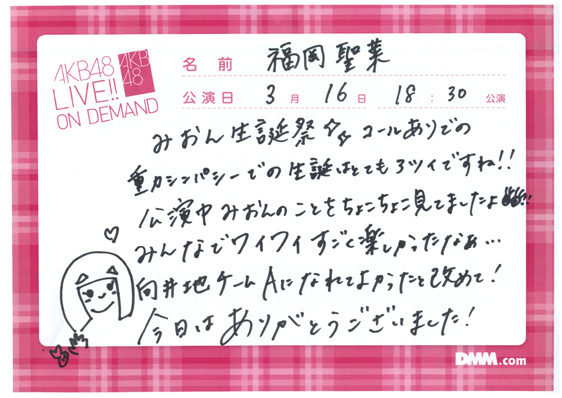 AKB48
LIVE!!
ON DEMAND
AKB
48
名前 福岡聖菜
公演日 3月16日 18:30公演
みおん生誕祭☆☆ コールありでの
重力シンパシーでの生誕はとてもアツイですね!!
公演中みおんのことをちょこちょこ見てましたよ
みんなでワイワイすごく楽しかったなぁ…
向井地チームAになれてよかったと改めて!
今日はありがとうございました!
DMM.com